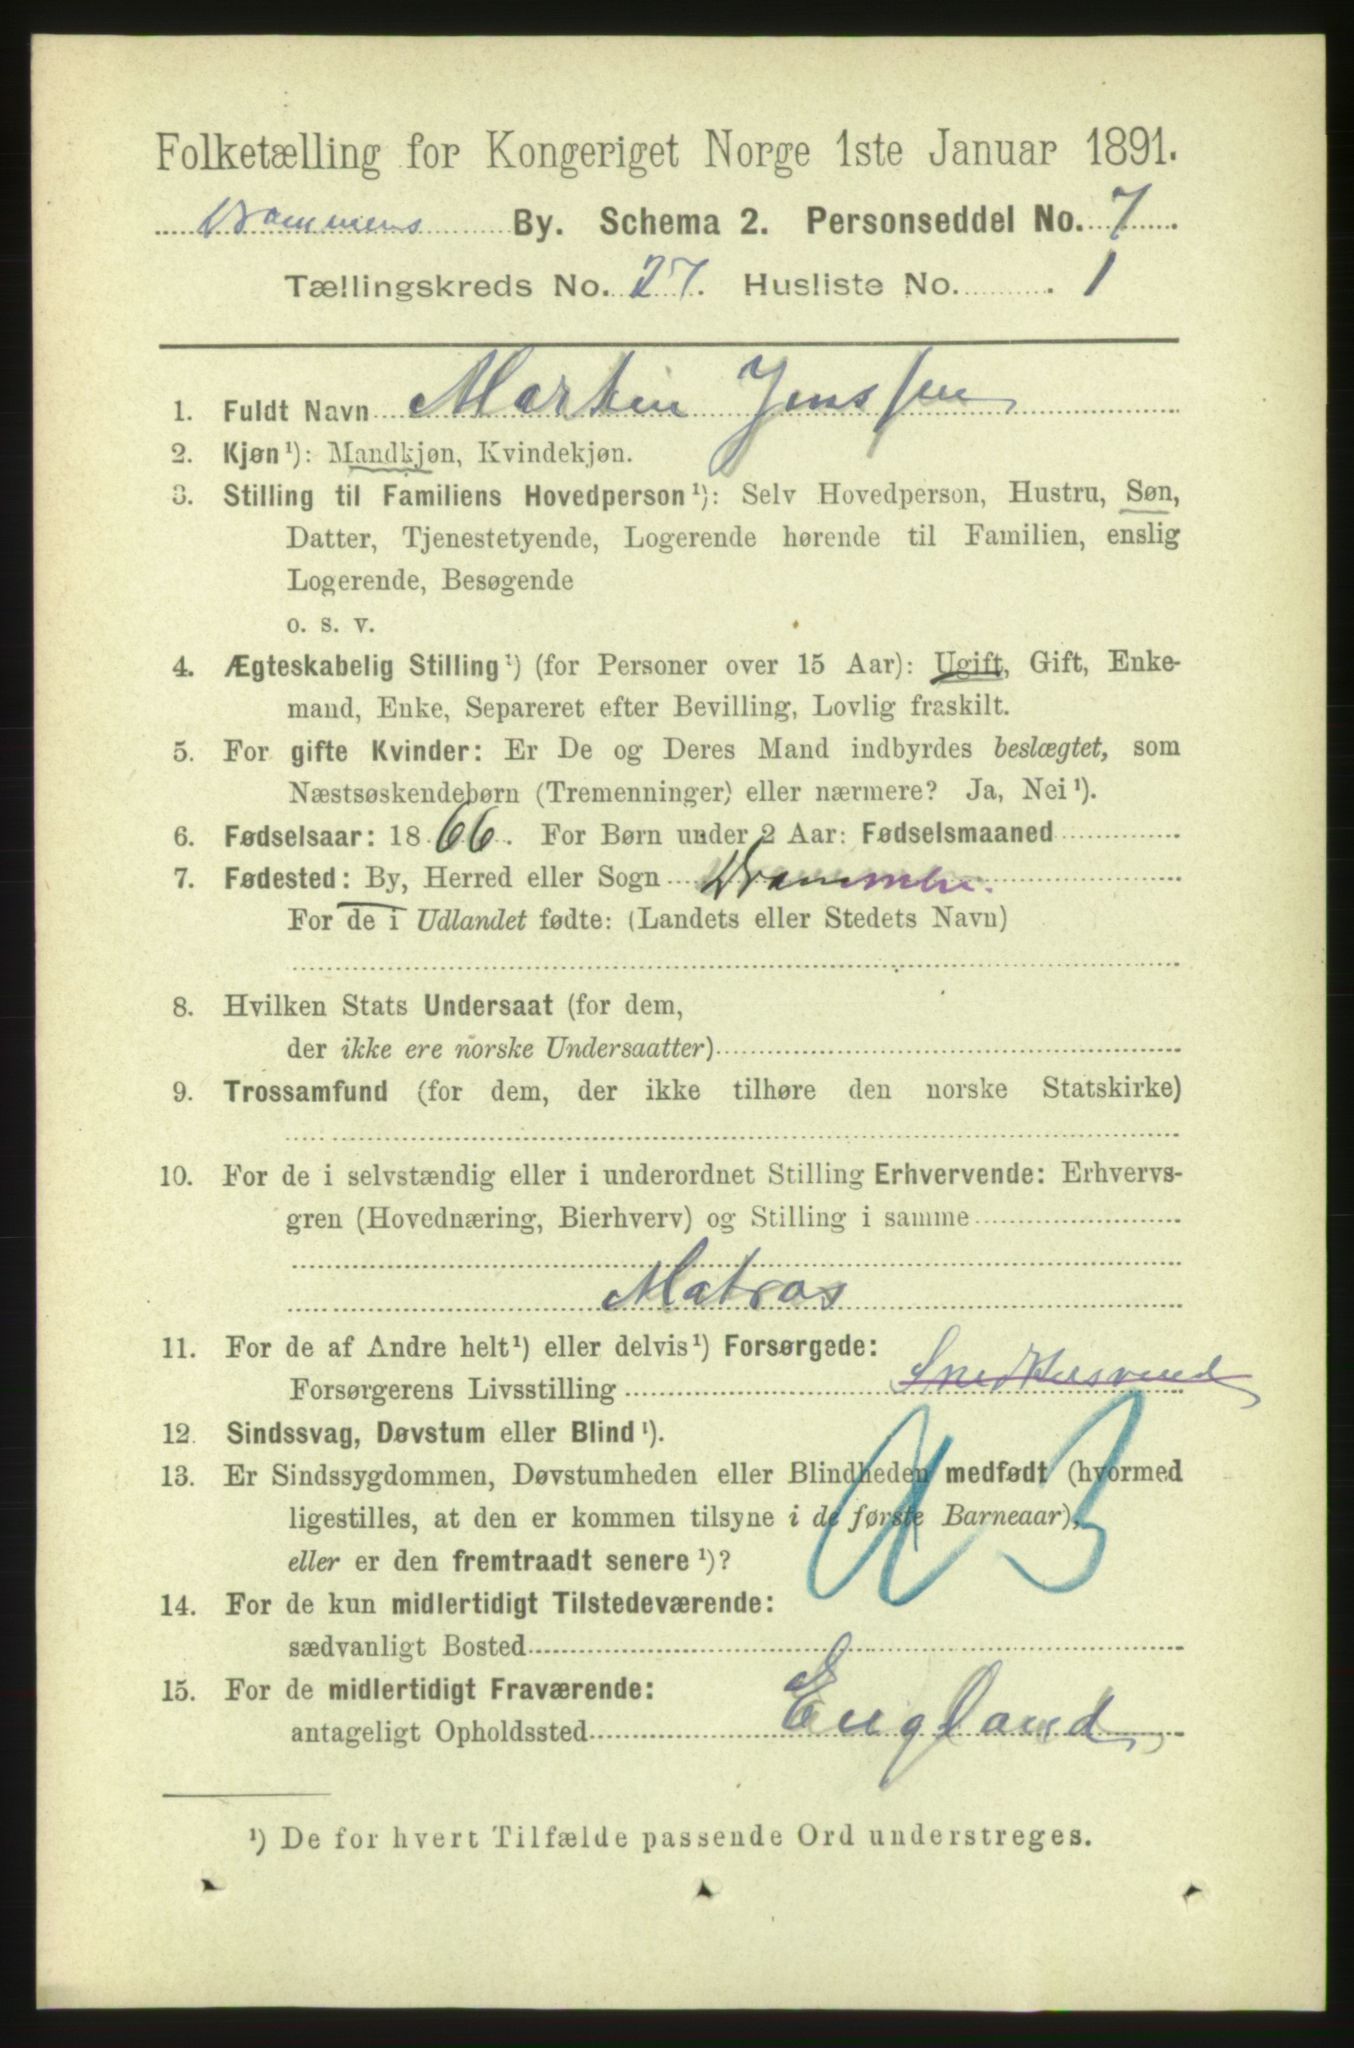 Folketælling for Kongeriget Norge 1ste Januar 1891.
Drammens By. Schema 2. Personseddel No. 7
Tællingskreds No. 27. Husliste No. 1
1. Fuldt Navn Martin Jenssen
2. Kjøn¹): Mandkjøn, Kvindekjøn.
3. Stilling til Familiens Hovedperson¹): Selv Hovedperson, Hustru, Søn,
Datter, Tjenestetyende, Logerende hørende til Familien, enslig
Logerende, Besøgende
o. s. v.
4. Ægteskabelig Stilling¹) (for Personer over 15 Aar): Ugift, Gift, Enke-
mand, Enke, Separeret efter Bevilling, Lovlig fraskilt.
5. For gifte Kvinder: Er De og Deres Mand indbyrdes beslægtet, som
Næstsøskendebørn (Tremenninger) eller nærmere? Ja, Nei¹).
6. Fødselsaar: 1866. For Børn under 2 Aar: Fødselsmaaned
7. Fødested: By, Herred eller Sogn Drammen.
For de i Udlandet fødte: (Landets eller Stedets Navn)
8. Hvilken Stats Undersaat (for dem,
der ikke ere norske Undersaatter)
9. Trossamfund (for dem, der ikke tilhøre den norske Statskirke)
10. For de i selvstændig eller i underordnet Stilling Erhvervende: Erhvervs-
gren (Hovednæring, Bierhverv) og Stilling i samme
Matros
11. For de af Andre helt¹) eller delvis¹) Forsørgede:
Forsørgerens Livsstilling Snedkersvend
12. Sindssvag, Døvstum eller Blind¹).
13. Er Sindssygdommen, Døvstumheden eller Blindheden medfødt (hvormed
ligestilles, at den er kommen tilsyne i de første Barneaar),
eller er den fremtraadt senere¹)?
14. For de kun midlertidigt Tilstedeværende:
sædvanligt Bosted
15. For de midlertidigt Fraværende:
antageligt Opholdssted England
¹) De for hvert Tilfælde passende Ord understreges.